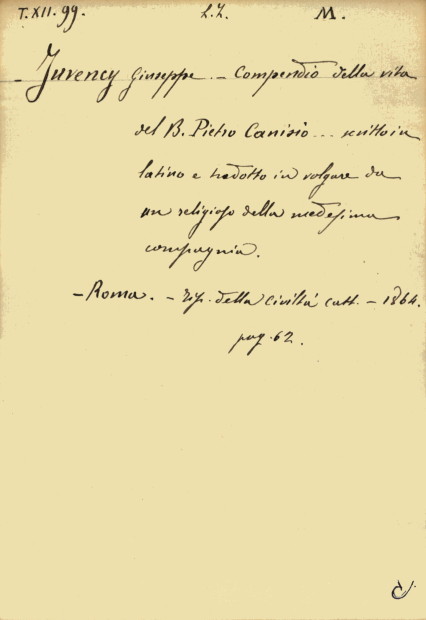 T.XII.99. L.L. M.
- Juvency Giuseppe. - Compendio della vita
del B. Pietro Canisio... scritto in
latino e tradotto in volgare da
un religioso della medesima
compagnia.
- Roma. - Tip. della Civiltá catt. - 1864.
pag. 62.